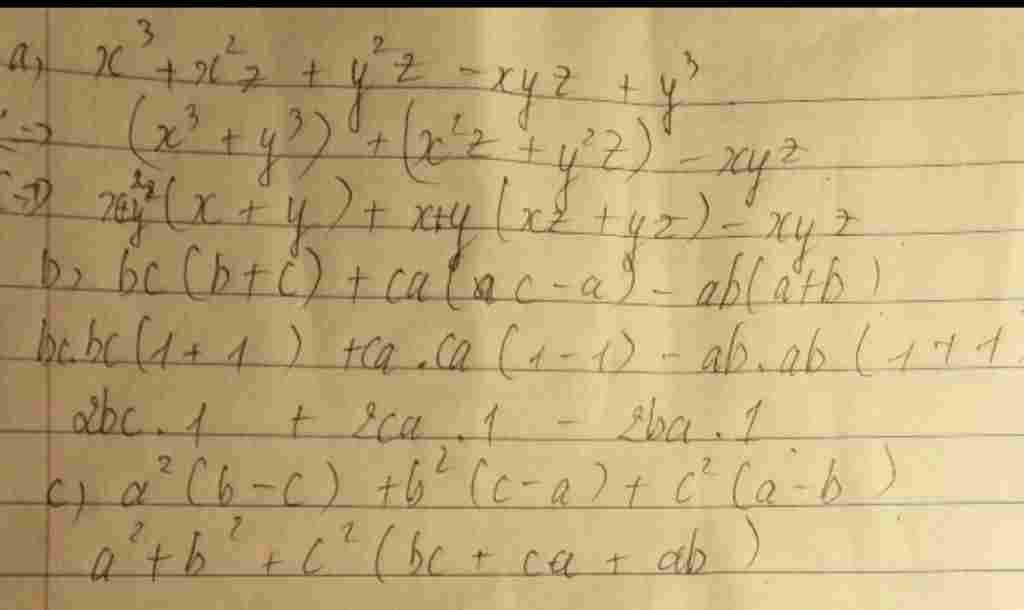 a, x³ + x²z + y²z - xyz + y³
(x³ + y³) + (x²z + y²z) - xyz
(x + y) + x+y (xz + yz) - xyz
b, bc (b+c) + ca (c-a) - ab(a+b)
bc.bc (1+1) + ca.ca (1-1) - ab.ab (1+1
2bc.1 + 2ca.1 - 2ba.1
c) a²(b-c) + b²(c-a) + c²(a-b)
a² + b² + c² (bc + ca + ab)